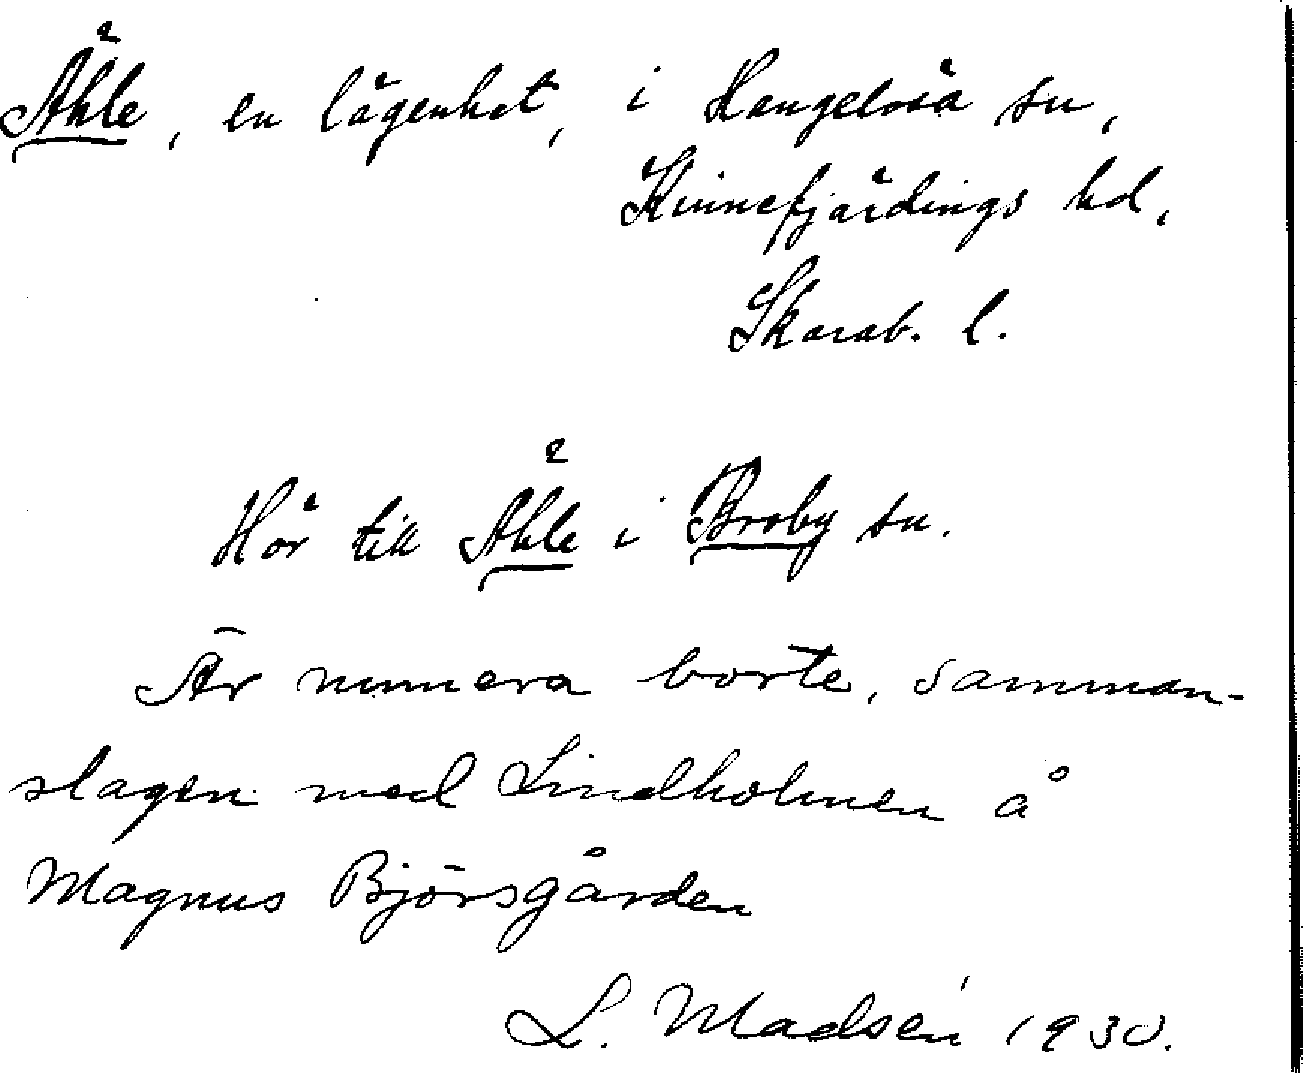 Åhle, en lägenhet, i Hangelösa sn,
Kinnefjärdings hd,
Skarab. l.
Hör till Åhle i Broby sn.
Är numera borte, samman-
slagen med Lindholmen å
Magnus Björsgården
L. Madsén 1930.